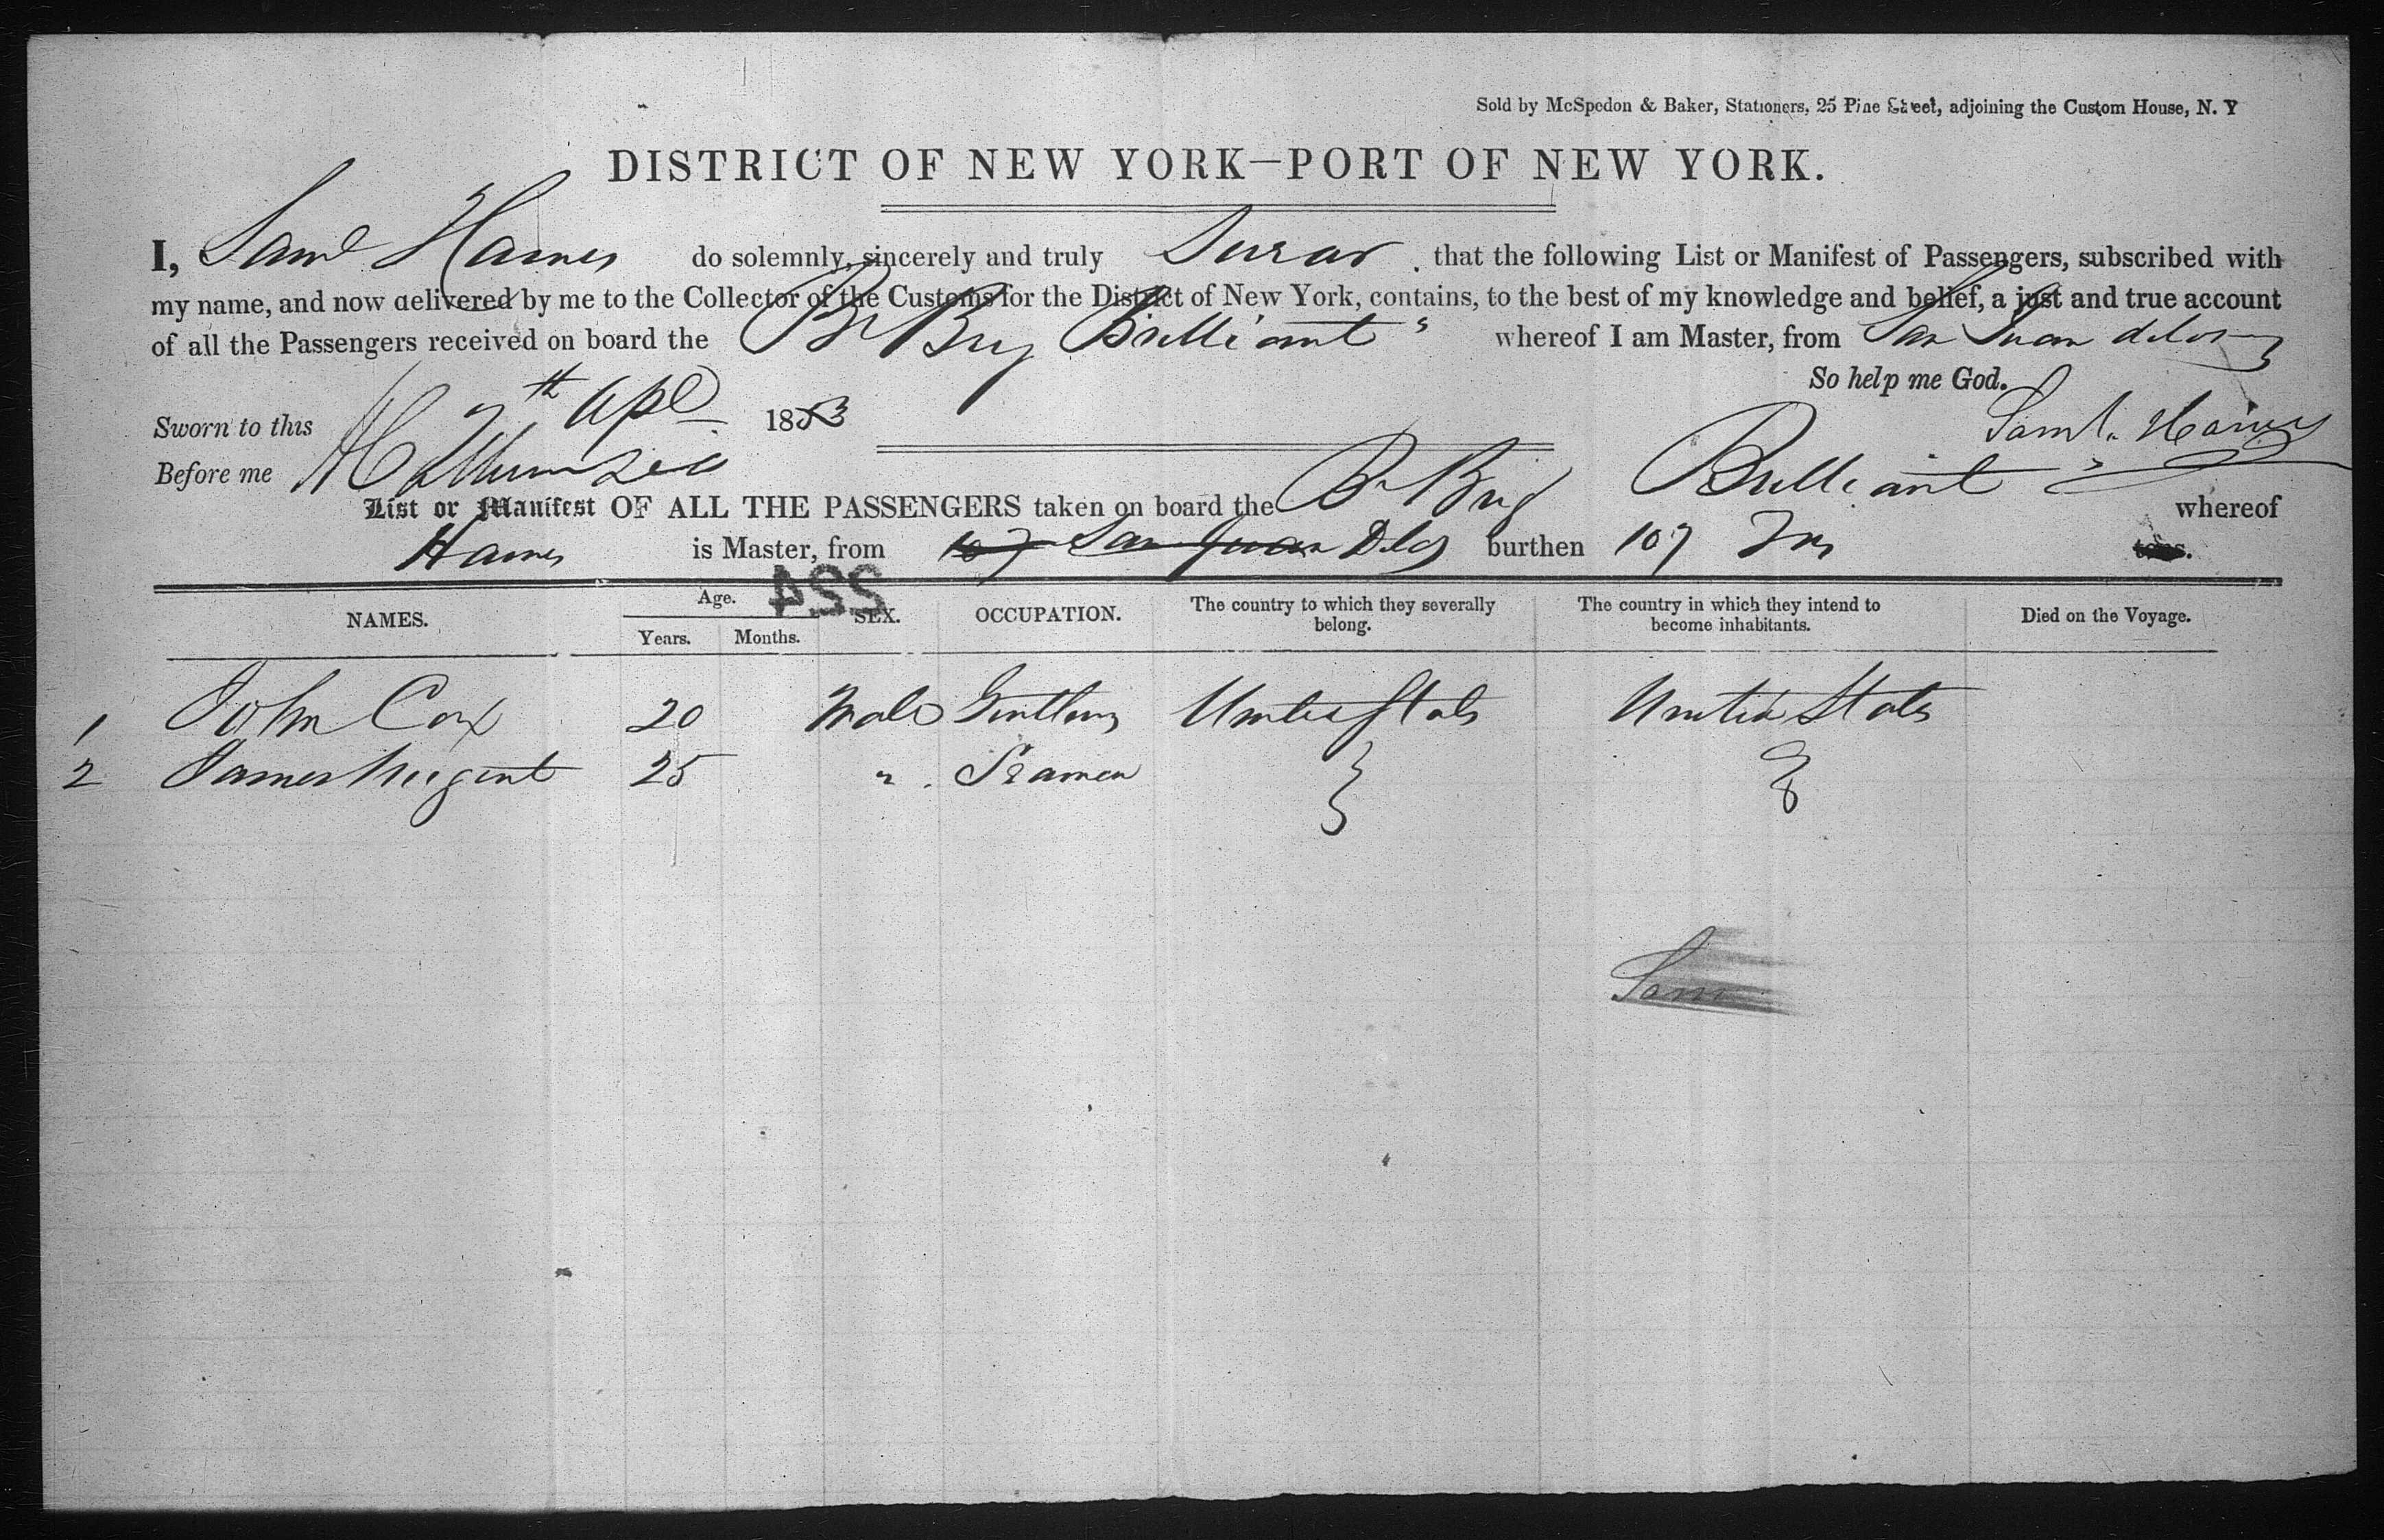 Sold by McSpedon & Baker, Stationers, 25 Pine Street, adjoining the Custom House, N. Y
DISTRICT OF NEW YORK—PORT OF NEW YORK.
I, Saml Haines do solemnly, sincerely and truly Swear that the following List or Manifest of Passengers, subscribed with
my name, and now delivered by me to the Collector of the Customs for the District of New York, contains, to the best of my knowledge and belief, a just and true account
of all the Passengers received on board the Br Brig Brilliant whereof I am Master, from San Juan
So help me God.
Sworn to this 7th Apl 1853
Saml. Haines
Before me
List or Manifest OF ALL THE PASSENGERS taken on board the Br Brig Brilliant whereof
Haines is Master, from San Juan burthen 107
tons.
224
NAMES. Age. SEX. OCCUPATION. The country to which they severally belong. The country in which they intend to become inhabitants. Died on the Voyage.
Years. Months.
1 John Cox 20 Male United States United States
2 James Nugent 25 " Seaman
Sam